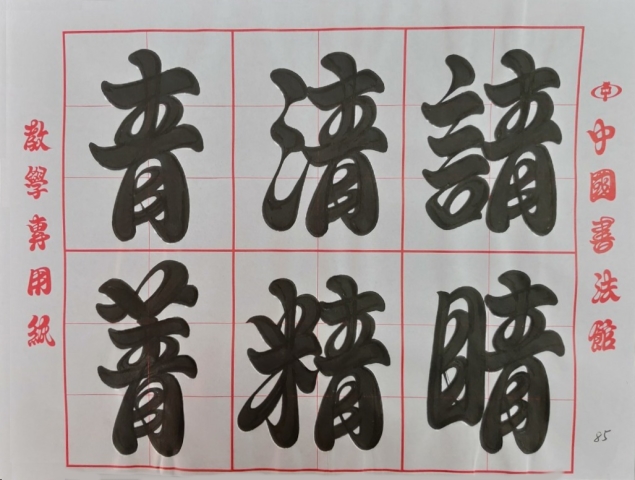 教學專用紙
青清請
菁精睛
中國書法館
85